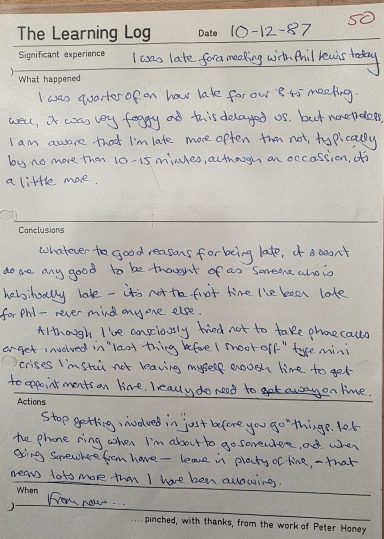 50
The Learning Log Date 10-12-87
Significant experience I was late for a meeting with Phil Lewis today
What happened
I was quarter of an hour late for our 8.45 meeting.
Well, it was very foggy and this delayed us. but nonetheless
I am aware that I'm late more often than not, typically
by no more than 10-15 minutes, although on occassion, it's
a little more.
Conclusions
Whatever the good reasons for being late, it doesn't
do me any good to be thought of as someone who is
habitually late – it's not the first time I've been late
for Phil – never mind anyone else.
Although I've consciously tried not to take phone calls
or get involved in "last thing before I shoot off" type mini
crises I'm still not leaving myself enough time to get
to appointments on time. I really do need to get away on time.
Actions
Stop getting involved in "just before you go" things. let
the phone ring when I'm about to go somewhere, and when
going somewhere from home – leave in plenty of time, – that
means lots more than I have been allowing.
When From now ...
.... pinched, with thanks, from the work of Peter Honey